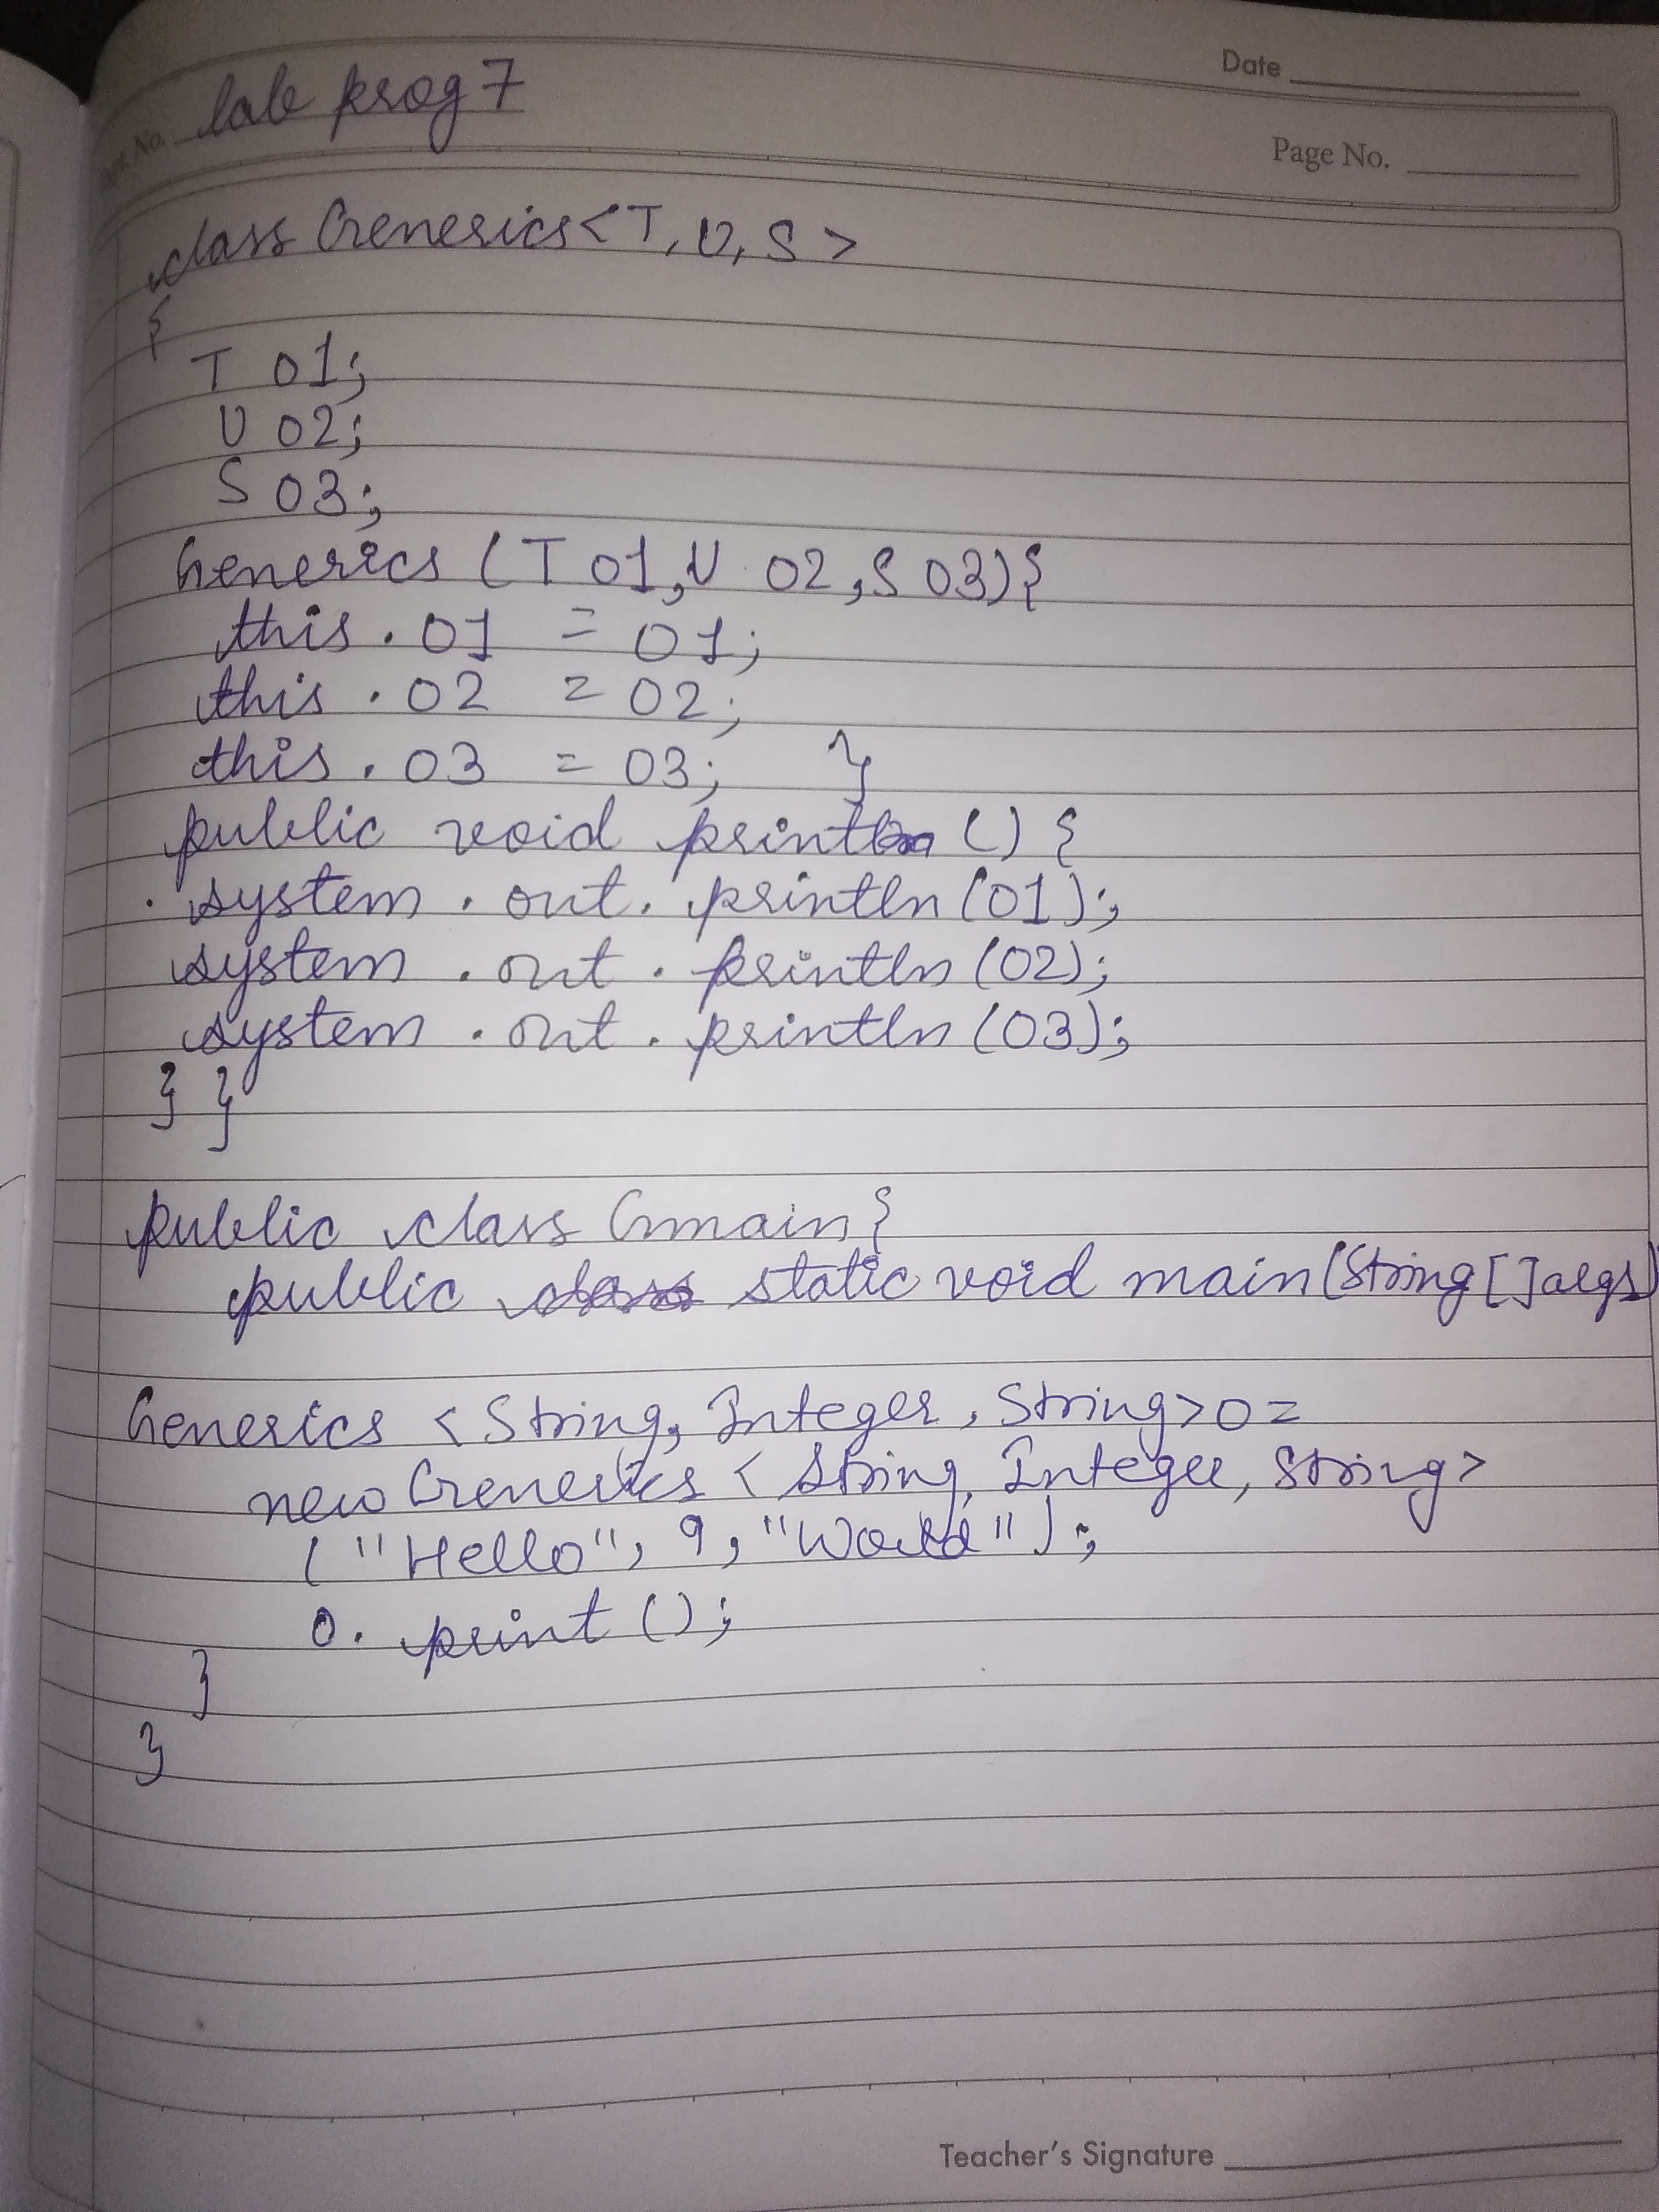 Date
Expt. No. lab prog 7
Page No.
class Generics<T, U, S>
{
T o1;
U o2;
S o3;
Generics (T o1, U o2, S o3){
this . o1 = o1;
this . o2 = o2;
this . o3 = o3; }
public void print () {
system . out . println (o1);
system . out . println (o2);
system . out . println (o3);
} }
public class Gmain{
public static void main(String [] args)
Generics <String, Integer, String> o =
new Generics < String, Integer, String>
("Hello", 9, "World");
o. print ();
}
}
Teacher's Signature